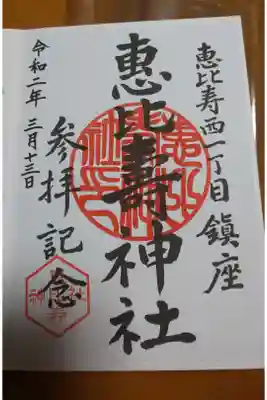 恵比寿西一丁目 鎮座
惠比壽神社
参拝記念
令和二年 三月十三日